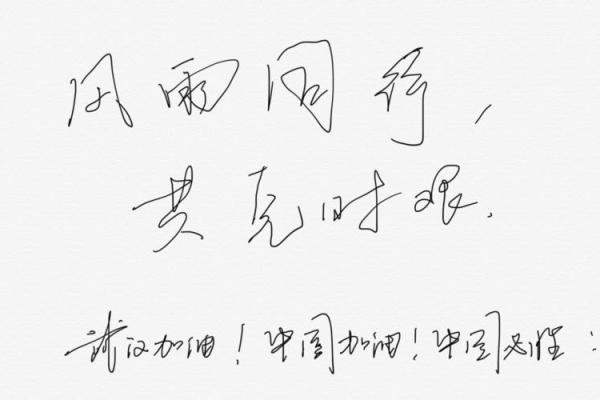 风雨同行，
共克时艰.
武汉加油！中国加油！中国必胜：